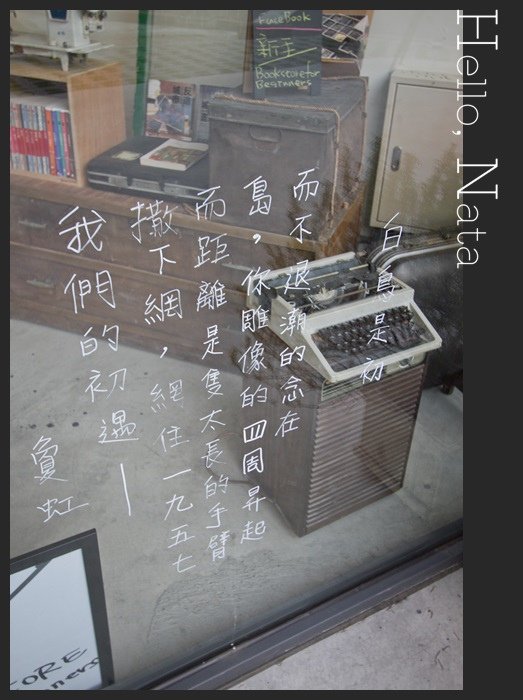 Hello, Nata
faceBook
新手
Bookstore for
Beginners
白鳥是初
而不退潮的念在
島,你雕像的四周昇起
而距離是隻太長的手臂
撒下網,網住一九五七
我們的初遇—
夐虹
TORE
nners